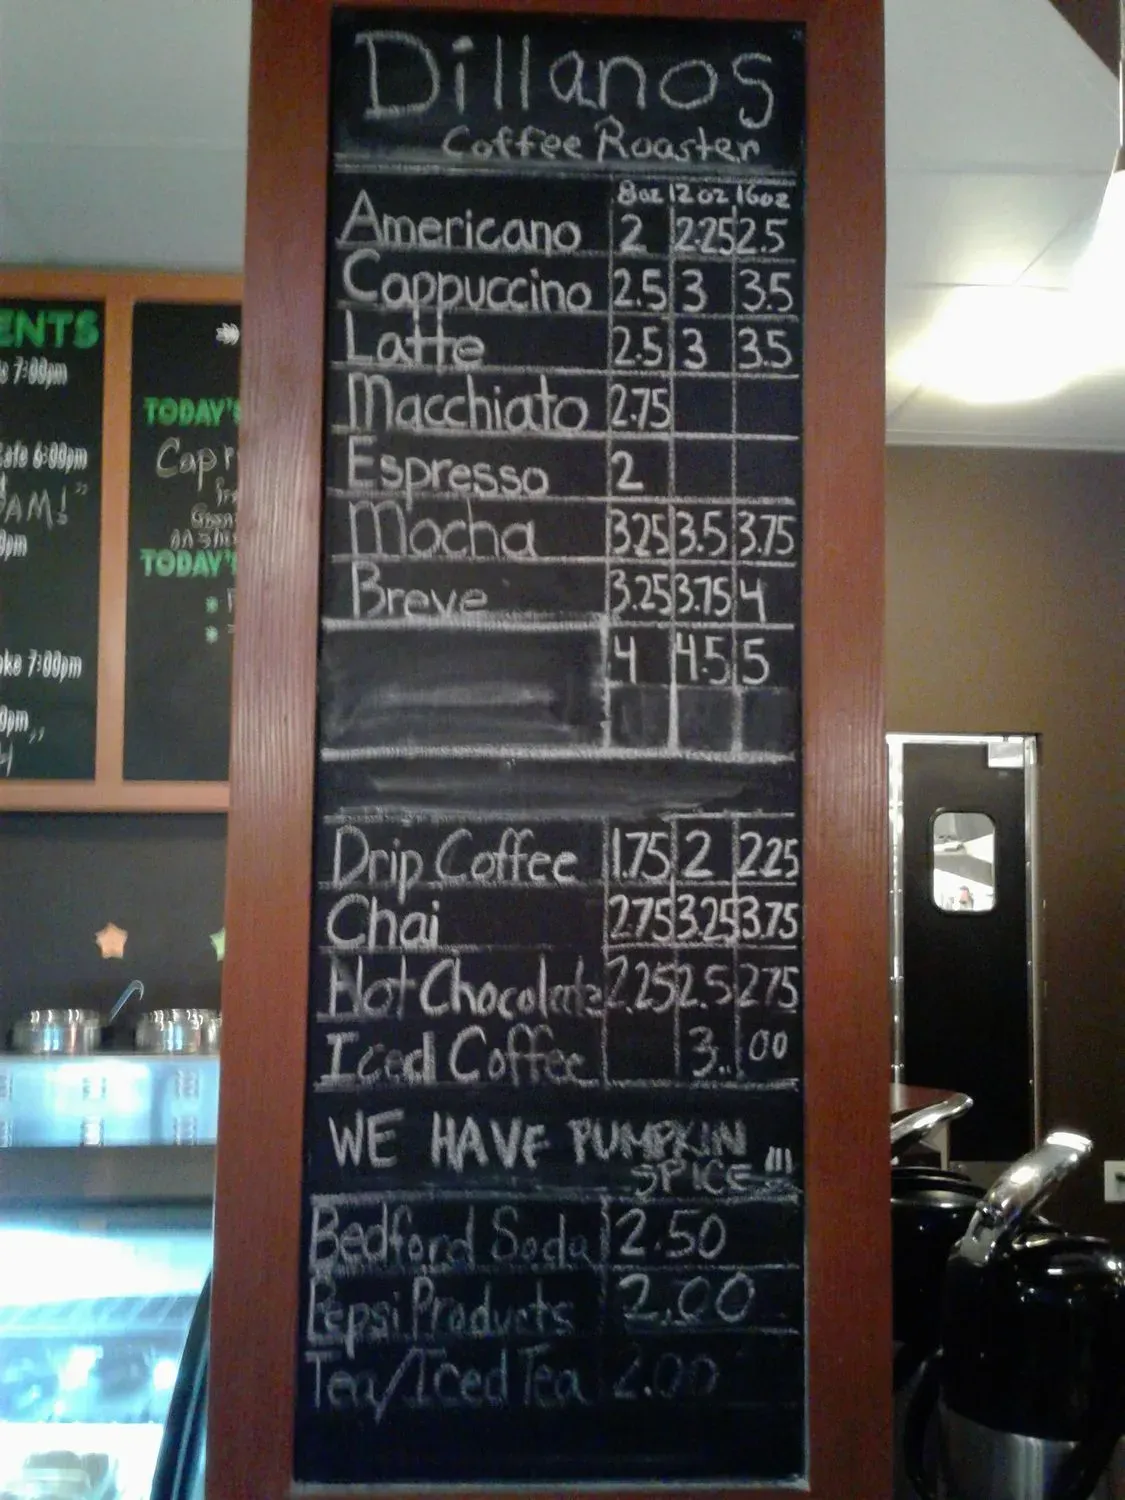 Dillanos
Coffee Roaster
8oz 12oz 16oz
Americano 2 2.25 2.5
Cappuccino 2.5 3 3.5
Latte 2.5 3 3.5
Macchiato 2.75
Espresso 2
Mocha 3.25 3.5 3.75
Breve 3.25 3.75 4
4 4.5 5
Drip Coffee 1.75 2 2.25
Chai 2.75 3.25 3.75
Hot Chocolate 2.25 2.5 2.75
Iced Coffee 3.. 00
WE HAVE PUMPKIN
SPICE !!!
Bedford Soda 2.50
Pepsi Products 2.00
Tea/Iced Tea 2.00
ENTS
7:00pm
afe 6:00pm
AM!"
pm
oke 7:00pm
0pm,,
TODAY'S
Capr
TODAY'